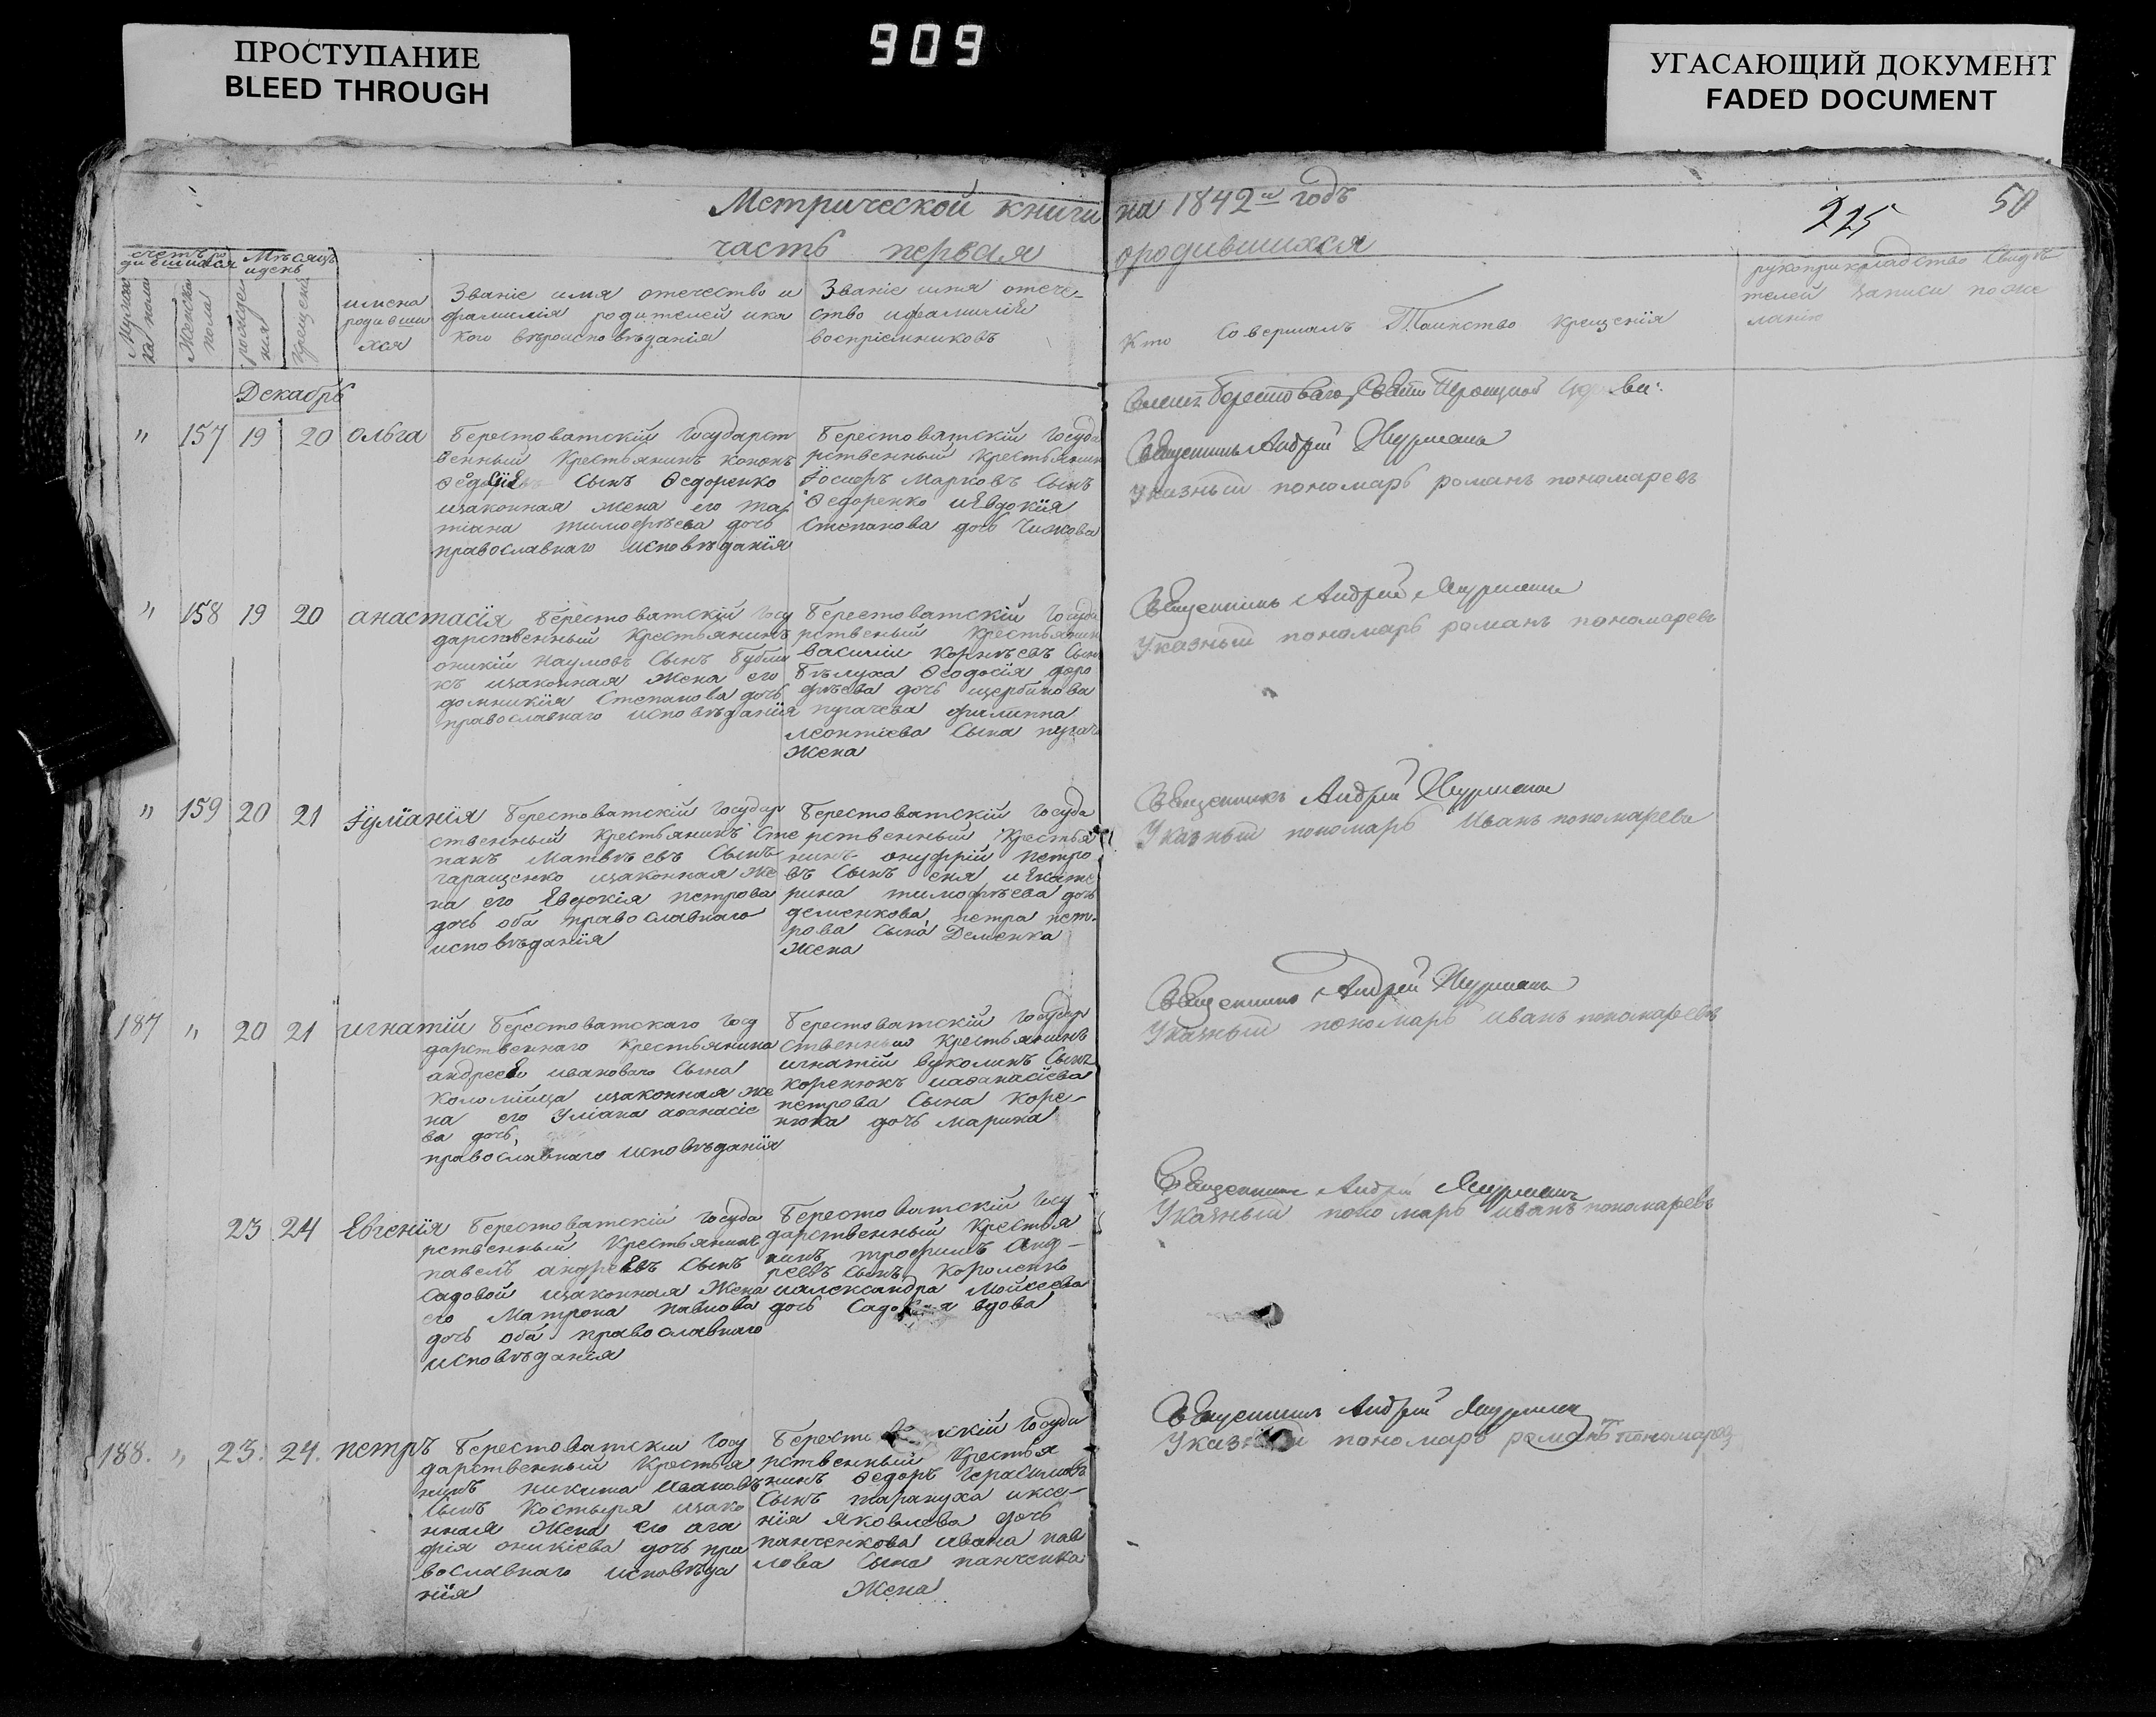 ПРОСТУПАНИЕ
BLEED THROUGH
909
УГАСАЮЩИЙ ДОКУМЕНТ
FADED DOCUMENT
Метрической книги на 1842й годъ
225
50
часть первая ородившихся
счетъ ро
дившихся
Мѣсяцъ
идень
Мужеска пола
Женска пола
рожде
нія
Крещенія
имена
родивши
хся
Званіе имя отечество и
фамилія родителей ика
кого вѣроисповѣданія
Званіе имя отече-
ство ифамилій
воспріемниковъ
Кто Совершалъ Таинство Крещенія
рукоприкладство Свидѣ
телей записи поже
ланію
Декабрь
" 157 19 20 ольга
Берестоватскій Государст
венный Крестьянинъ кононъ
Сынъ Ѳедоренко
изаконная жена его тат
тіана тимофѣева дочь
православнаго исповѣданія
Берестоватскій Госуда
рственный Крестьянин
Іосифъ Марковъ Сынъ
Ѳедоренко иЕвдокія
Степанова дочь Чижова
Священникъ Андрей
Указный пономарь романъ пономаревъ
" 158 19 20 анастасія
Берестоватскій Госу
дарственный Крестьянинъ
оникій Наумовъ Сынъ Бубли
къ изаконная Жена его
домникія Степанова дочь
православнаго исповѣданія
Берестоватскій Госуда
рственый Крестьянин
василій Корнѣевъ Сын
Бѣлуха Ѳеодосія доро
фѣева дочь щербинова
пугачева филиппа
леонтіева Сына пугач
Жена
Священникъ Андрей
Указный пономарь романъ пономаревъ
" 159 20 21 Іуліанія
Берестоватскій Государ
ственный Крестьянинъ Сте
панъ Матвѣевъ Сынъ
гаращенко изаконная Же
на его Евдокія петрова
дочь оба православнаго
исповѣданія
Берестоватскій Госуда
рственный Крестья
нинъ онуфрій петро
въ Сынъ иЕкате
рина тимофѣева дочь
деменкова, петра пет-
рова Сына Деменка
Жена
Священникъ Андрей
Указный пономарь Иванъ пономаревъ
187 " 20 21 игнатій
Берестоватскаго Госу
дарственнаго Крестьянина
андрея ивановаго Сына
Коломійца изаконная же
на его Уліана аѳанасіе
ва дочь,
православнаго исповѣданія
Берестоватскій Государ
ственный Крестьянинъ
игнатій вуколинъ Сынъ
коренюкъ иаѳанасіева
петрова Сына Коре-
нюка дочь марина
Священникъ Андрей
Указный пономарь иванъ пономаревъ
23 24 Евгенія
Берестоватскій Госуда
рственный Крестьянинъ
павелъ андреевъ Сынъ
садовой изаконная Жена
его Матрона павлова
дочь оба православнаго
исповѣданія
Берестоватскій Госу
дарственный Крестья
нинъ трофимъ Анд-
реевъ Сынъ Короленко
иалександра Мойсеева
дочь вдова
Священникъ Андрей
Указный пономарь иванъ пономаревъ
188. " 23. 24. петръ
Берестоватскій Госу
дарственный Крестья
нинъ никита Ивановъ
Сынъ Костыря изако
нная Жена его ага
фія оникіева дочь пра
вославнаго исповѣда
нія
Госуда
рственный Крестья
нинъ Ѳедоръ Герасимовъ
Сынъ тарануха иксе-
нія яковлева дочь
панченкова ивана пав
лова Сына панченка
Жена
Священникъ Андрей
Указный пономарь романъ пономарев